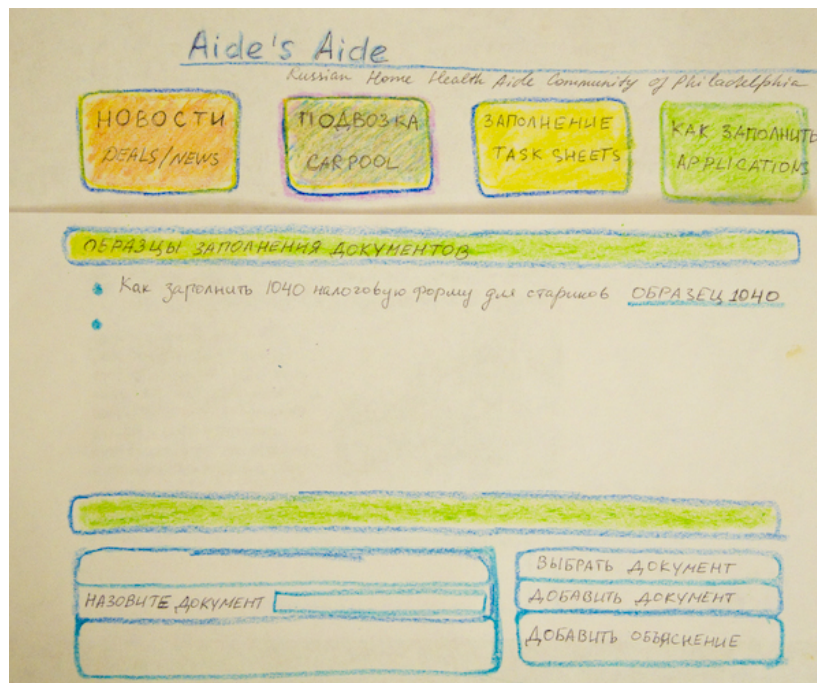 Aide's Aide
Russian Home Health Aide Community of Philadelphia
НОВОСТИ
DEALS/NEWS
ПОДВОЗКА
CARPOOL
ЗАПОЛНЕНИЕ
TASK SHEETS
КАК ЗАПОЛНИТЬ
APPLICATIONS
ОБРАЗЦЫ ЗАПОЛНЕНИЯ ДОКУМЕНТОВ
Как заполнить 1040 налоговую форму для стариков ОБРАЗЕЦ 1040
НАЗОВИТЕ ДОКУМЕНТ
ВЫБРАТЬ ДОКУМЕНТ
ДОБАВИТЬ ДОКУМЕНТ
ДОБАВИТЬ ОБЪЯСНЕНИЕ